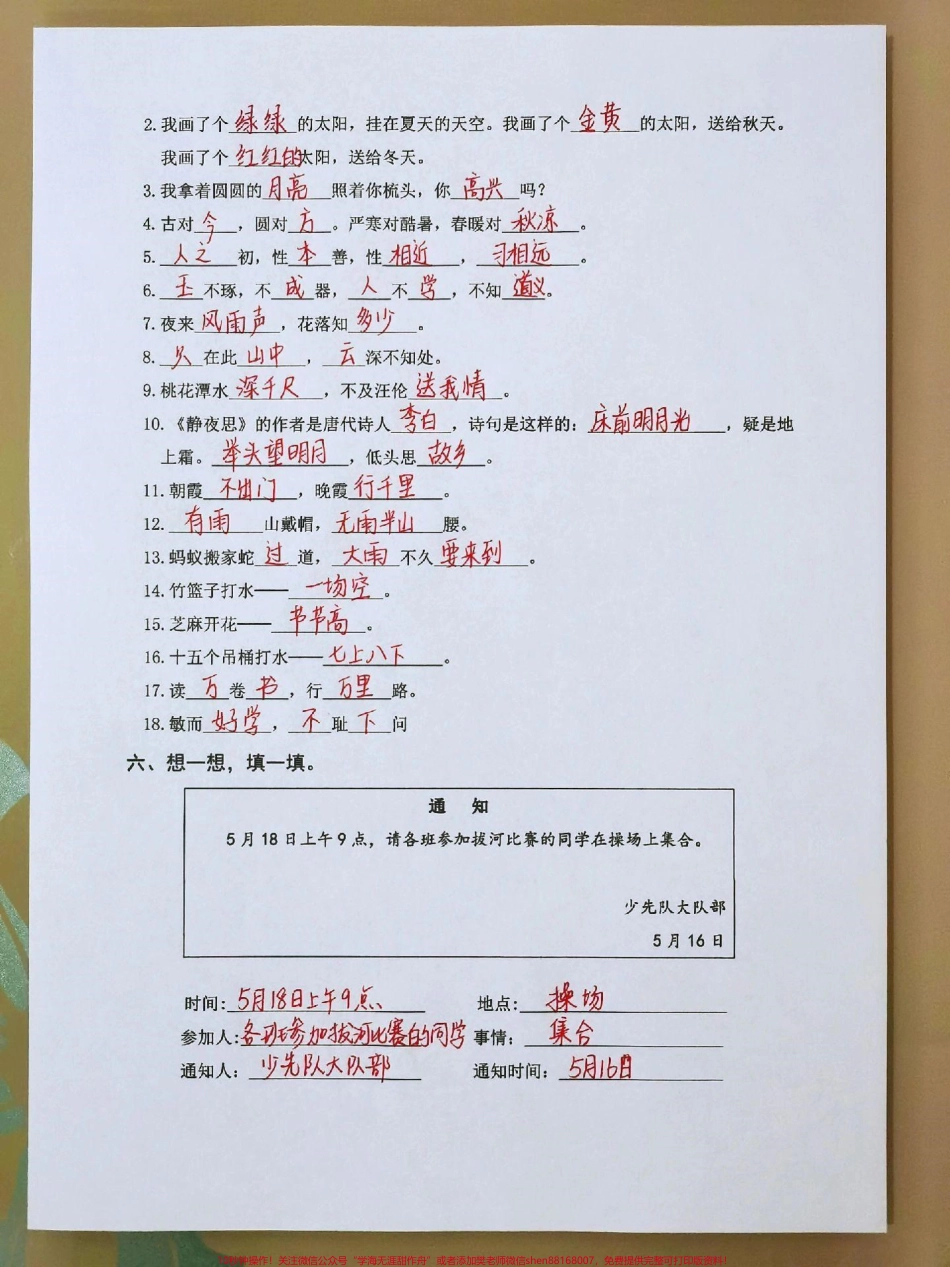 2. 我画了个绿绿的太阳，挂在夏天的天空。我画了个金黄的太阳，送给秋天。
我画了个红红的太阳，送给冬天。
3. 我拿着圆圆的月亮照着你梳头，你高兴吗？
4. 古对今，圆对方。严寒对酷暑，春暖对秋凉。
5. 人之初，性本善，性相近，习相远。
6. 玉不琢，不成器，人不学，不知道义。
7. 夜来风雨声，花落知多少。
8. 久在此山中，云深不知处。
9. 桃花潭水深千尺，不及汪伦送我情。
10. 《静夜思》的作者是唐代诗人李白，诗句是这样的：床前明月光，疑是地
上霜。举头望明月，低头思故乡。
11. 朝霞不出门，晚霞行千里。
12. 有雨山戴帽，无雨半山腰。
13. 蚂蚁搬家蛇过道，大雨不久要来到。
14. 竹篮子打水——一场空。
15. 芝麻开花——节节高。
16. 十五个吊桶打水——七上八下。
17. 读万卷书，行万里路。
18. 敏而好学，不耻下问
六、想一想，填一填。
通 知
5月18日上午9点，请各班参加拔河比赛的同学在操场上集合。
少先队大队部
5月16日
时间：5月18日上午9点 地点：操场
参加人：各班参加拔河比赛的同学 事情：集合
通知人：少先队大队部 通知时间：5月16日
操作！关注微信公众号“学海无涯甜作舟”或者添加樊老师微信shen88168007，免费提供完整可打印版资料！